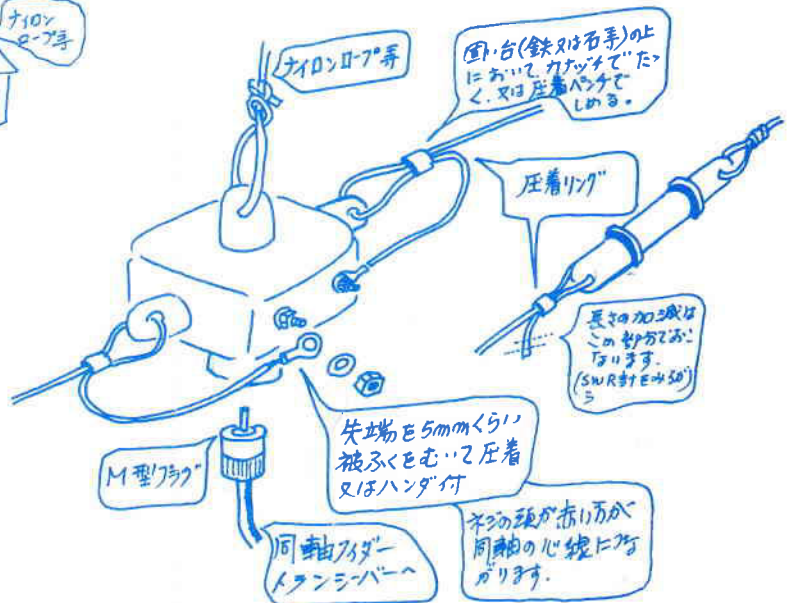 ナイロン
ロープ等
ナイロンロープ等
固い台(鉄又は石等)の上
において、カナヅチでたた
く、又は圧着ペンチで
しめる。
圧着リング
長さの加減は
この部分でおこ
ないます.
(SWR計をみなが
ら
先端を5mmくらい
被ふくをむいて圧着
又はハンダ付
M型プラグ
同軸フィダー
トランシーバーへ
ネジの頭が赤い方が
同軸の心線につな
がります.